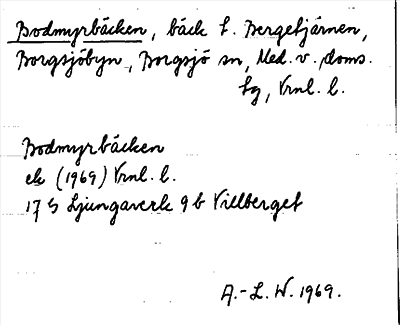 Bodmyrbäcken, bäck t. Bergetjärnen,
Borgsjöbyn, Borgsjö sn, Med. v. doms.
tg, Vrnl. l.
Bodmyrbäcken
ek (1969) Vrnl. l.
17 G Ljungaverk 9 b Villberget
A.-L. W. 1969.